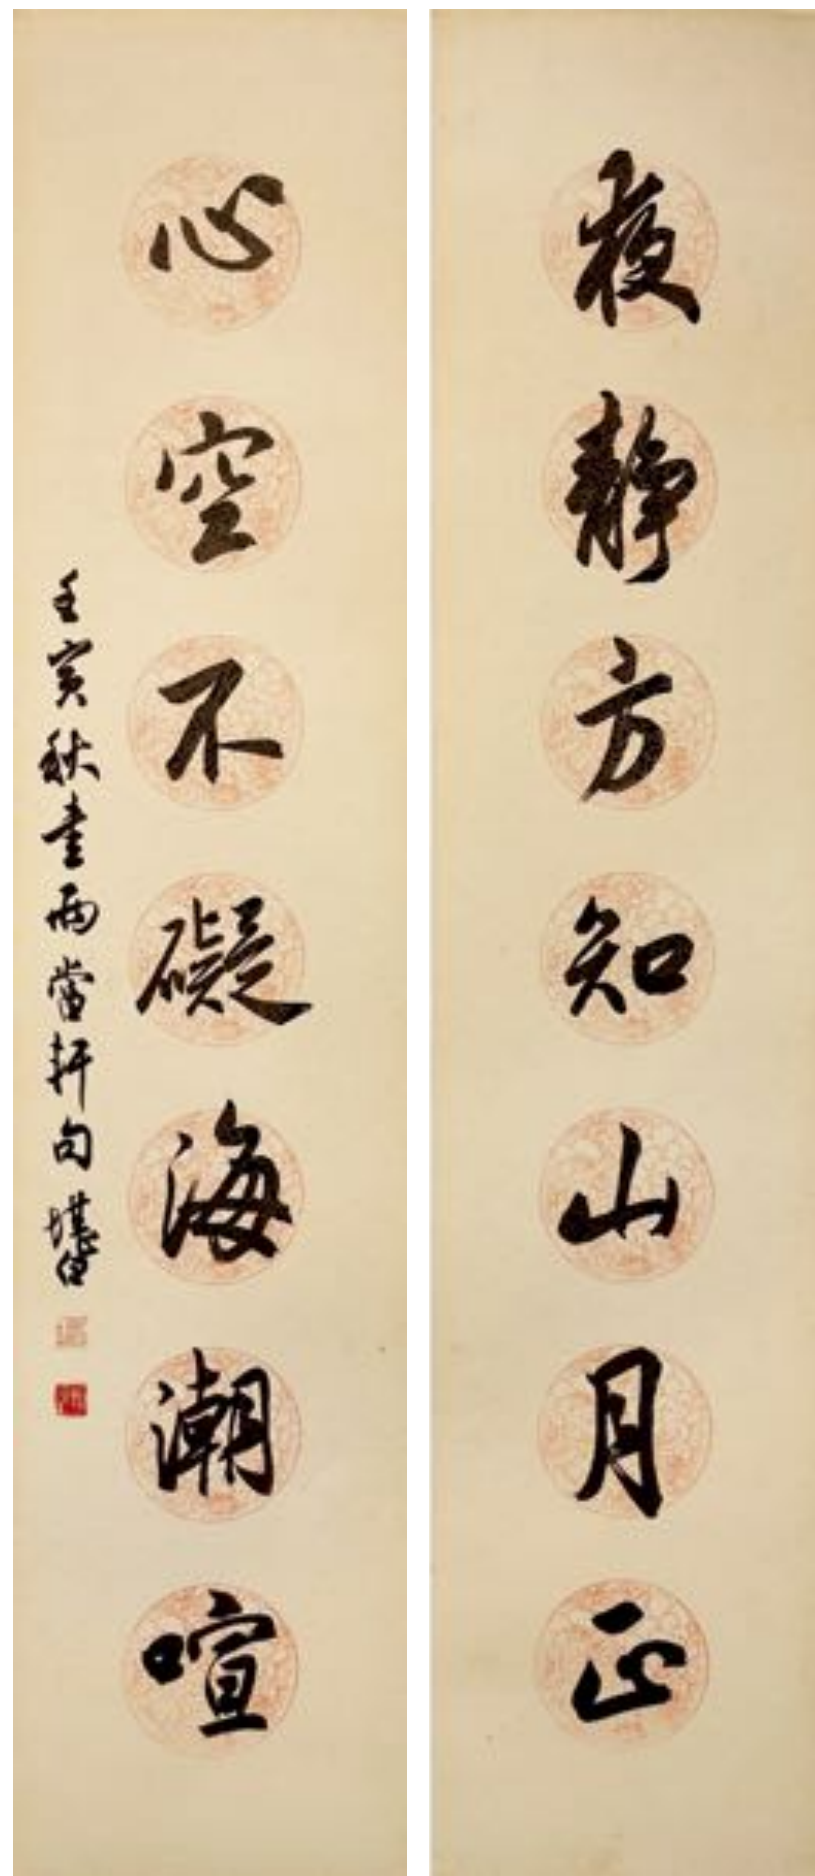 夜靜方知山月正
心空不礙海潮喧
壬寅秋書兩當軒句 堪白